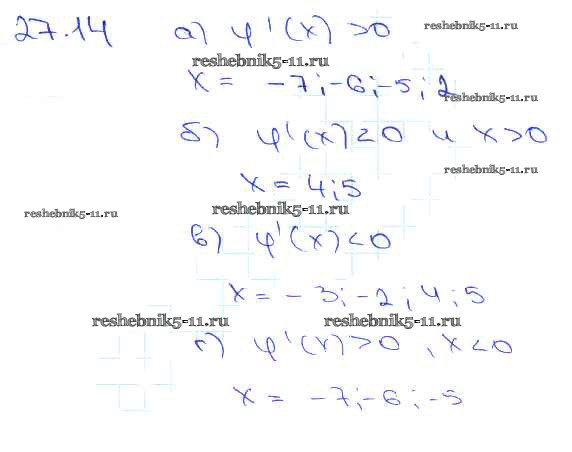 27.14 а) φ'(x) >0
reshebnik5-11.ru
reshebnik5-11.ru
x = -7; -6; -5; 2
reshebnik5-11.ru
б) φ'(x) <0 и x>0
reshebnik5-11.ru
x = 4; 5
reshebnik5-11.ru
reshebnik5-11.ru
в) φ'(x) <0
x = -3; -2; 4; 5
reshebnik5-11.ru
reshebnik5-11.ru
г) φ'(x) >0, x<0
x = -7; -6; -5